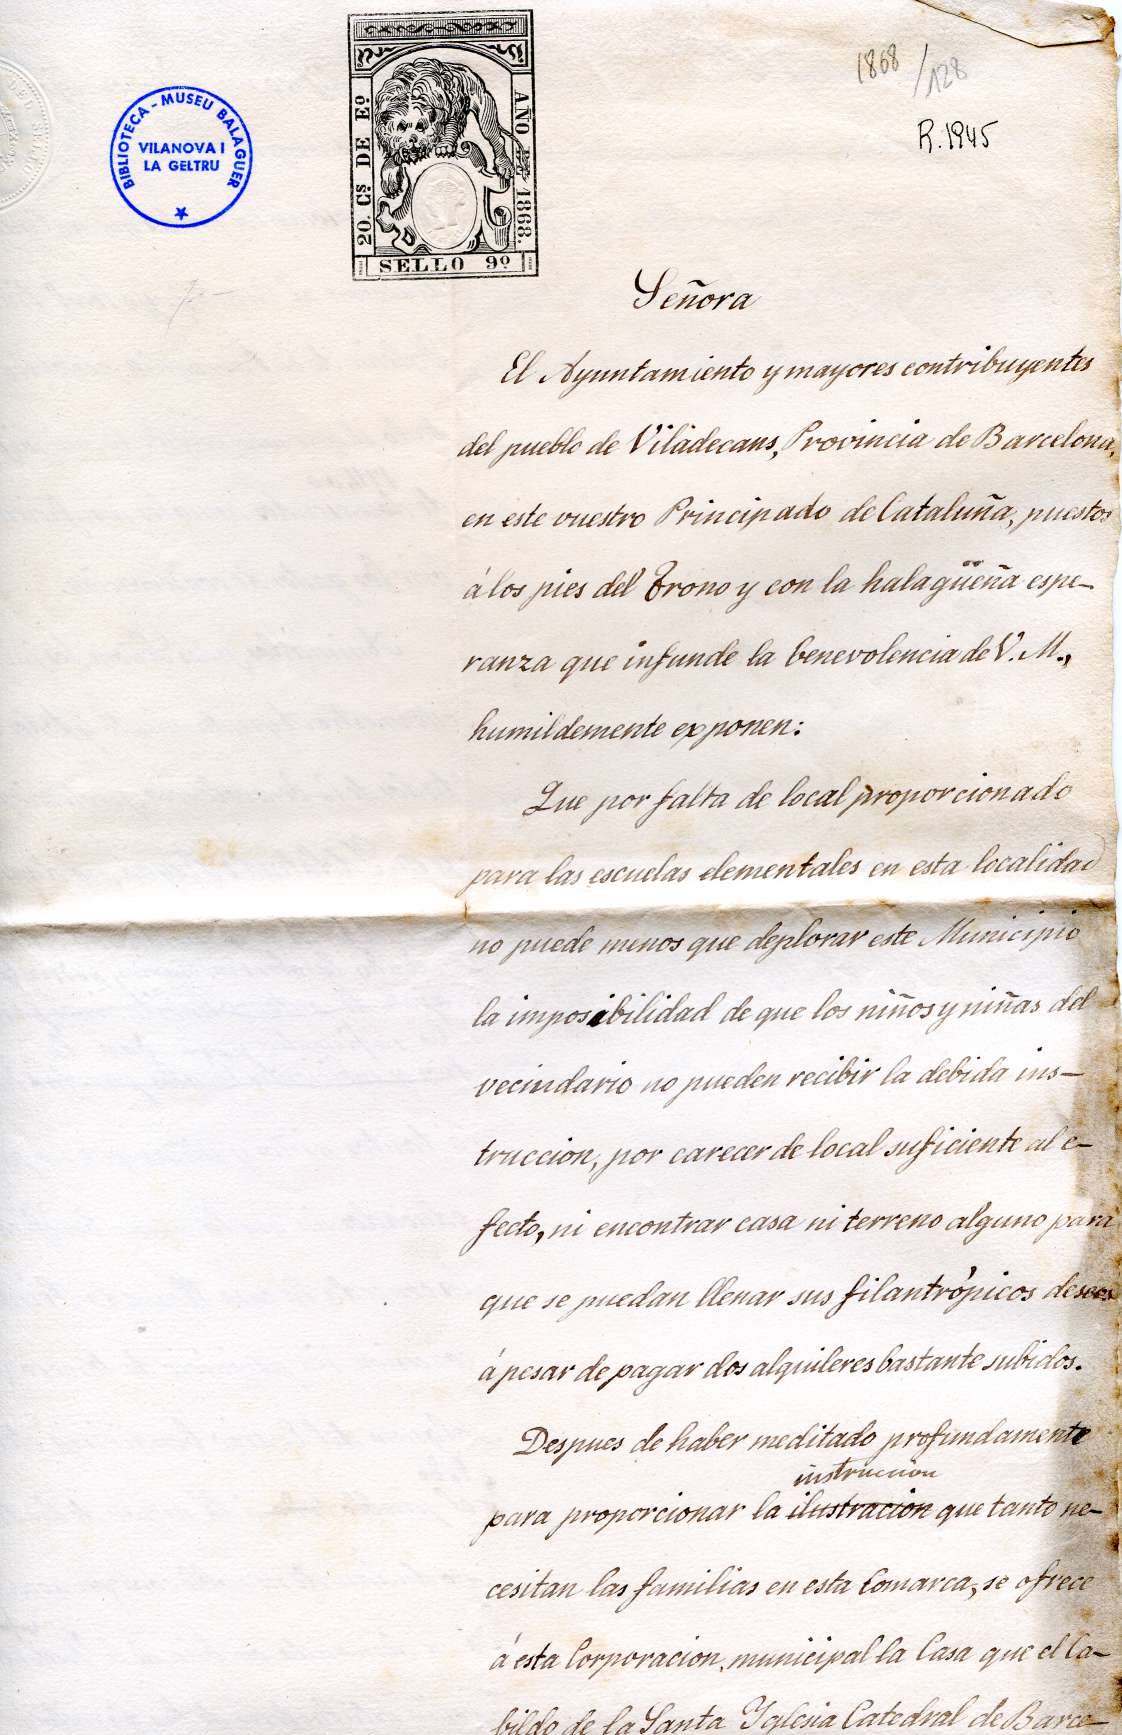 1868/128
R.1945
BIBLIOTECA - MUSEU BALAGUER
VILANOVA I
LA GELTRU
20. Cs. DE Eo.
AÑO 1868.
SELLO 9o
Señora
El Ayuntamiento y mayores contribuyentes
del pueblo de Viladecans, Provincia de Barcelona,
en este vuestro Principado de Cataluña, puestos
á los pies del Trono y con la halagüeña espe-
ranza que infunde la benevolencia de V. M.,
humildemente exponen:
Que por falta de local proporcionado
para las escuelas elementales en esta localidad
no puede menos que deplorar este Municipio
la imposibilidad de que los niños y niñas del
vecindario no pueden recibir la debida ins-
truccion, por carecer de local suficiente al e-
fecto, ni encontrar casa ni terreno alguno para
que se puedan llenar sus filantrópicos deseos
á pesar de pagar dos alquileres bastante subidos.
Despues de haber meditado profundamente
instruccion
para proporcionar la ilustracion que tanto ne-
cesitan las familias en esta Comarca, se ofrece
á esta Corporacion, municipal la Casa que el Ca-
bildo de la Santa Yglesia Catedral de Barce-